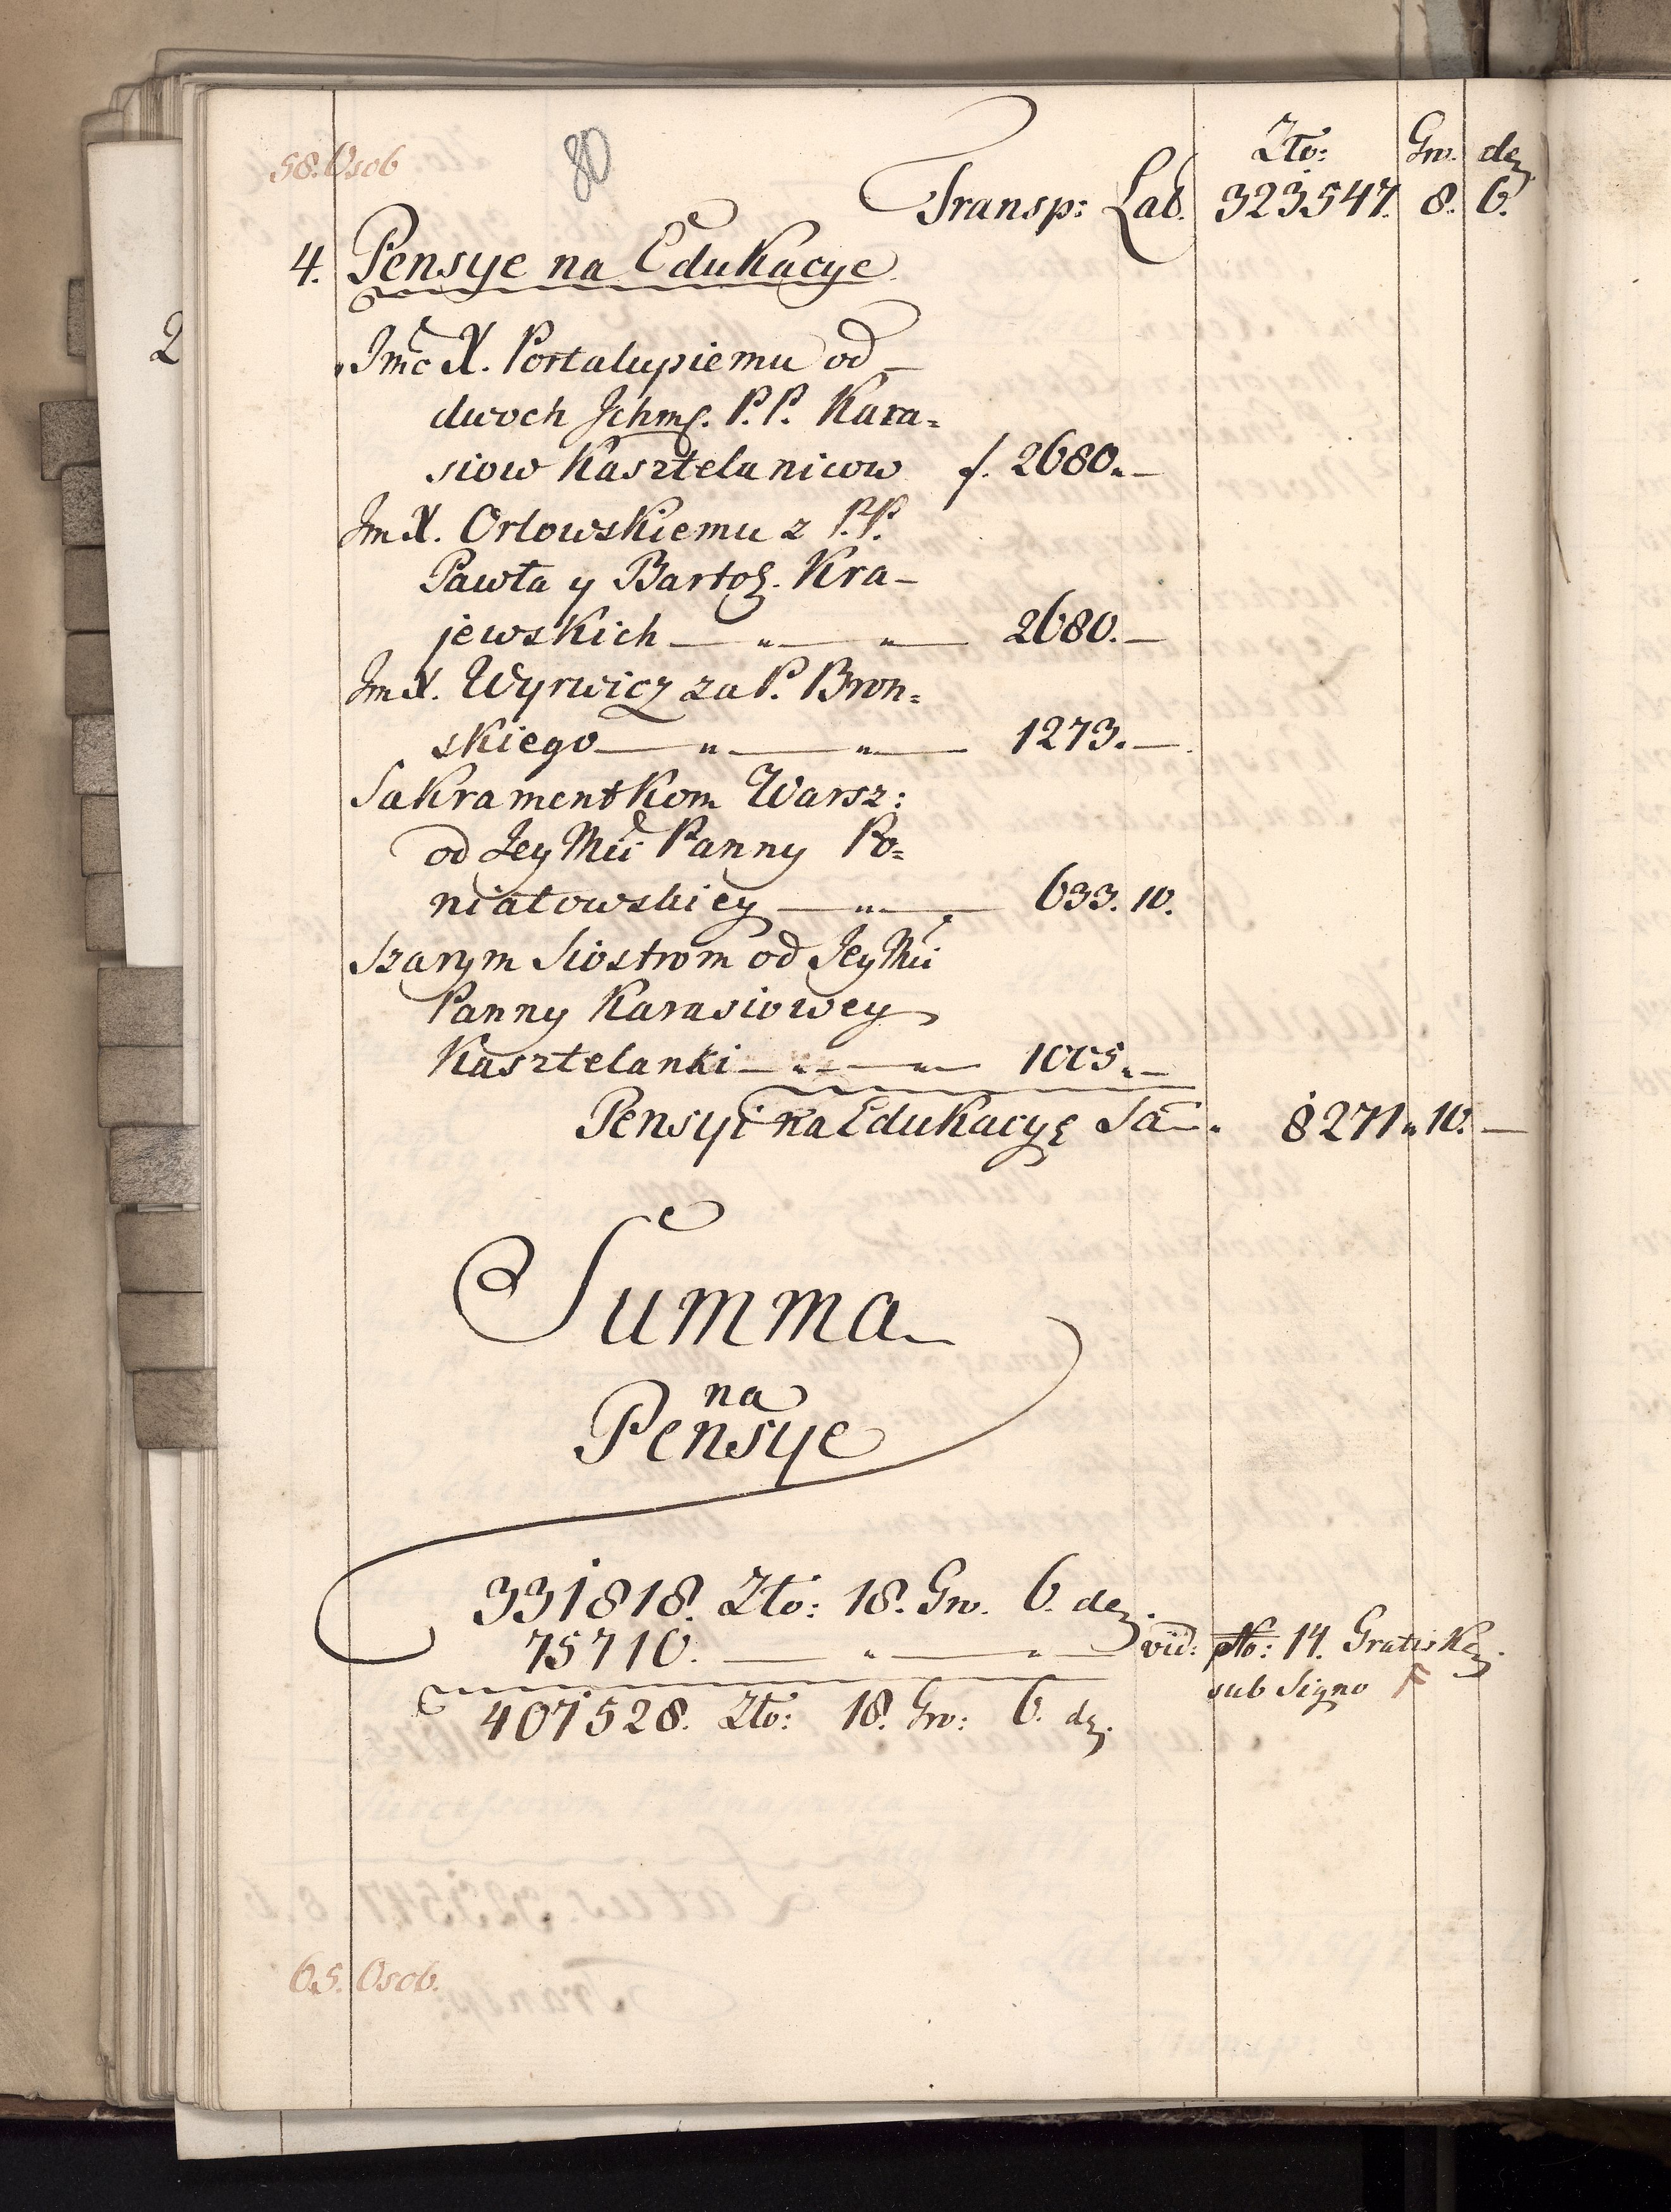 58. Osob
80
Zło: Gro. den
Transp: Lat. 323547. 8. 6.
4. Pensye na Edukacye
Jmć X. Portalupiemu od
dwoch Jchmć. P.P. Kara=
siow Kasztelanicow f. 2680.„—
Jm X. Orłowskiemu z P.P.
Pawła y Bartoł. Kra-
jewskich — „ — „ — 2680.—
Jm X. Wyrwicz za P. Bron=
skiego — „ — „ — 1273.—
Sakramentkom Warsz:
od Jey Mći Panny Po=
niatowskiey — „ — 633. 10.
Szarym Siostrom od Jey Mći
Panny Karasiowey
Kasztelanki — „ — „ — 1005.„—
Pensyi na Edukacyę Sa. 8271„ 10. —
Summa
na
Pensye
331818. Zło: 18. Gro. 6. den.
75710. — „ — „ — vid: No: 14. Gratis K
sub Signo F
407528. Zło: 18. Gro: 6. de.
65. Osob.
2